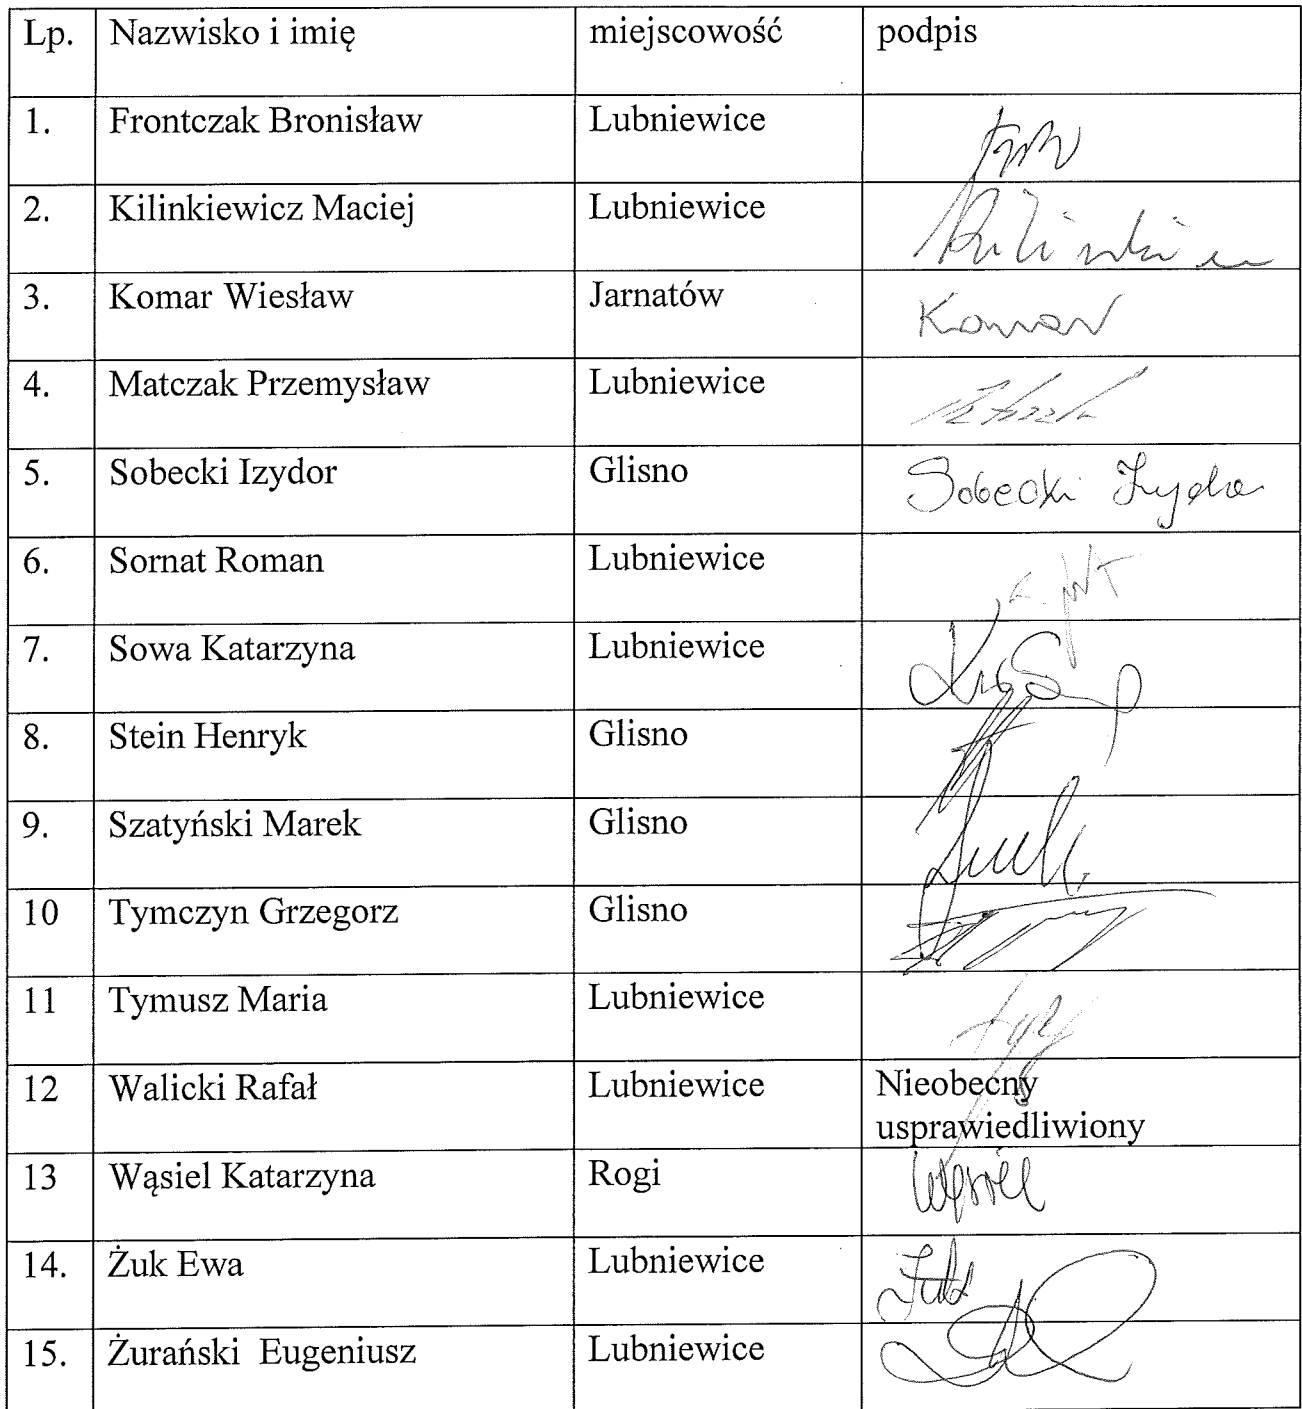 Lp. Nazwisko i imię miejscowość podpis
1. Frontczak Bronisław Lubniewice
2. Kilinkiewicz Maciej Lubniewice
3. Komar Wiesław Jarnatów Komar
4. Matczak Przemysław Lubniewice
5. Sobecki Izydor Glisno Sobecki Izydor
6. Sornat Roman Lubniewice
7. Sowa Katarzyna Lubniewice
8. Stein Henryk Glisno
9. Szatyński Marek Glisno
10 Tymczyn Grzegorz Glisno
11 Tymusz Maria Lubniewice
12 Walicki Rafał Lubniewice Nieobecny
usprawiedliwiony
13 Wąsiel Katarzyna Rogi Wąsiel
14. Żuk Ewa Lubniewice
15. Żurański Eugeniusz Lubniewice